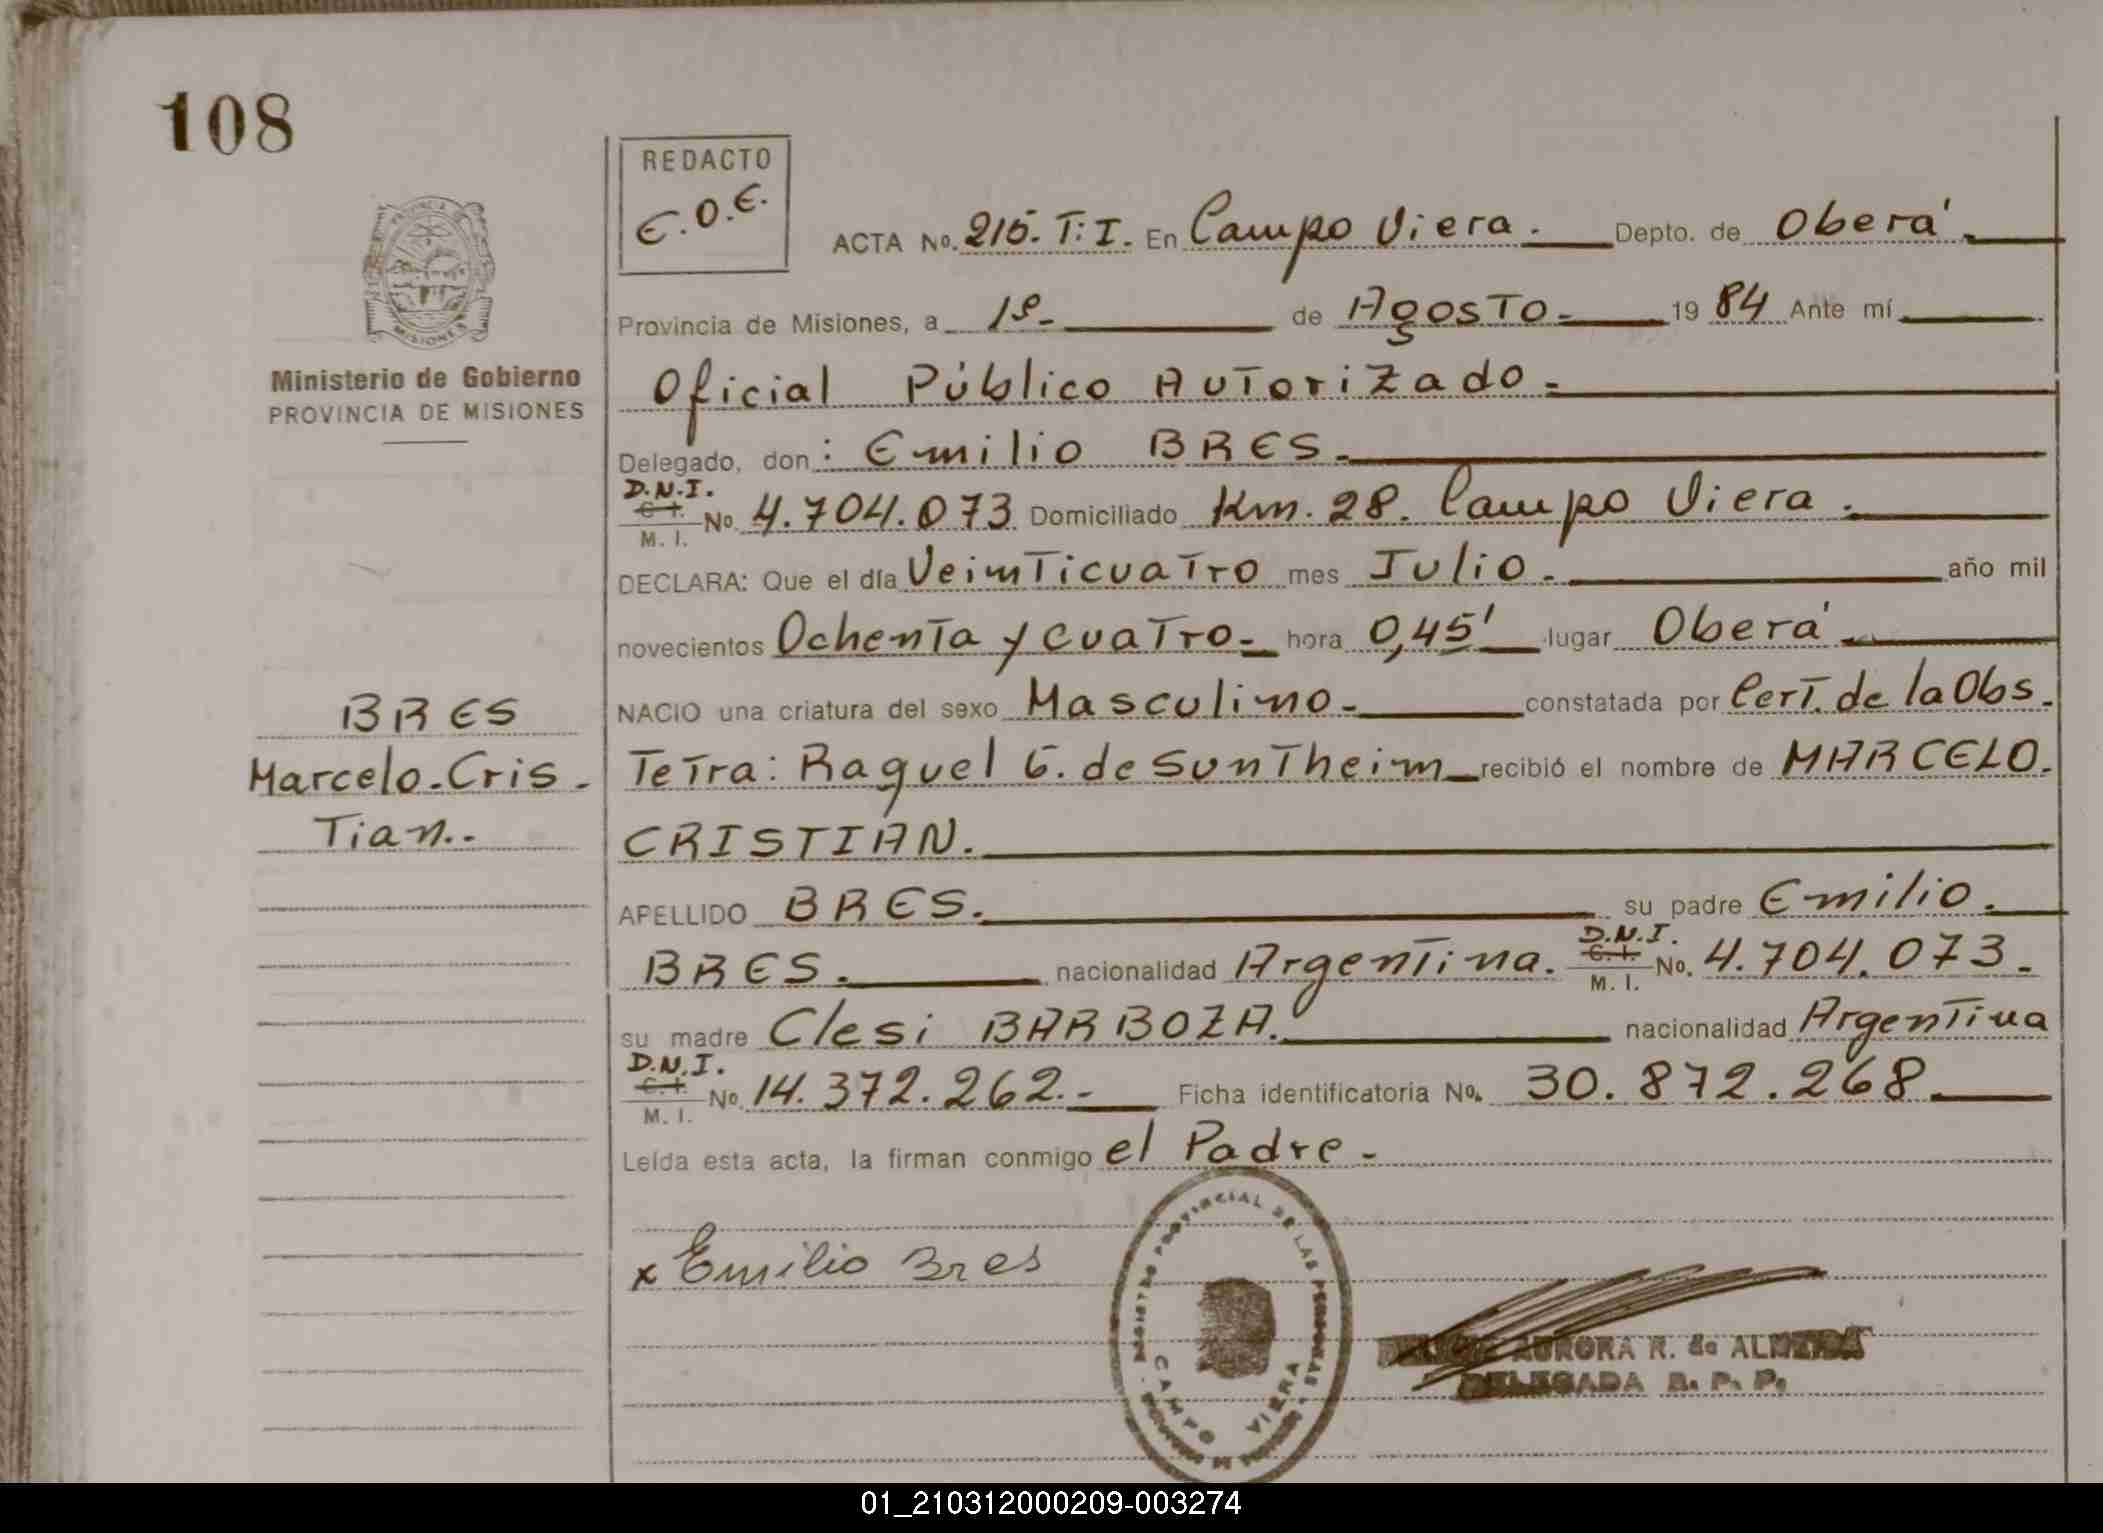 108
REDACTO
E.O.E.
ACTA No. 215. T: I. En Campo Viera. Depto. de Oberá.
Provincia de Misiones, a 1º- de Agosto- 1984 Ante mí
Ministerio de Gobierno
PROVINCIA DE MISIONES
Oficial Público Autorizado-
Delegado, don: Emilio BRES-
D.N.I.
C. I.
M. I.
No. 4.704.073 Domiciliado Km. 28. Campo Viera.
DECLARA: Que el día Veimticuatro mes Julio. año mil
novecientos Ochenta y cuatro- hora 0,45' lugar Oberá
NACIO una criatura del sexo Masculino- constatada por Cert. de la Obs.
Tetra: Raquel G. de Suntheim recibió el nombre de MARCELO.
CRISTIAN.
BRES
Marcelo-Cris-
Tian.-
APELLIDO BRES. su padre Emilio.
BRES. nacionalidad Argentina. D.N.I. C. I. M. I. No. 4.704.073.
su madre Clesi BARBOZA. nacionalidad Argentina
D.N.I.
C. I.
M. I.
No. 14.372.262.- Ficha identificatoria No. 30.872.268
Leída esta acta, la firman conmigo el Padre-
x Emilio Bres
REGISTRO PROVINCIAL DE LAS PERSONAS
CAMPO VIERA
AURORA R. de ALMEIDA
DELEGADA R. P. P.
PROVINCIA DE MISIONES
01_210312000209-003274